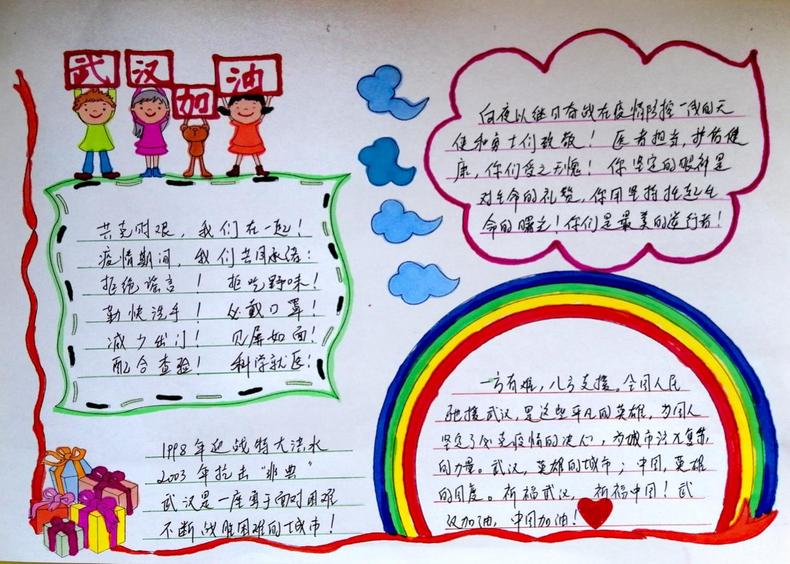 武汉加油
共克时艰，我们在一起！
疫情期间，我们共同承诺：
拒绝谣言！ 拒吃野味！
勤快洗手！ 必戴口罩！
减少出门！ 见屏如面！
配合查验！ 科学就医！
1998年迎战特大洪水
2003年抗击“非典”
武汉是一座勇于面对困难
不断战胜困难的城市！
白夜以继日奋战在疫情防控一线的天
使和勇士们致敬！医者担当，护佑健
康，你们受之无愧！你坚定的眼神是
对生命的礼赞，你用坚持托起生
命的曙光！你们是最美的逆行者！
一方有难，八方支援。全国人民
驰援武汉，是这些平凡的英雄，为国人
坚定了必克疫情的决心，为城市注
的力量。武汉，英雄的城市；中国，英雄
的国度。祈福武汉，祈福中国！武
汉加油，中国加油！